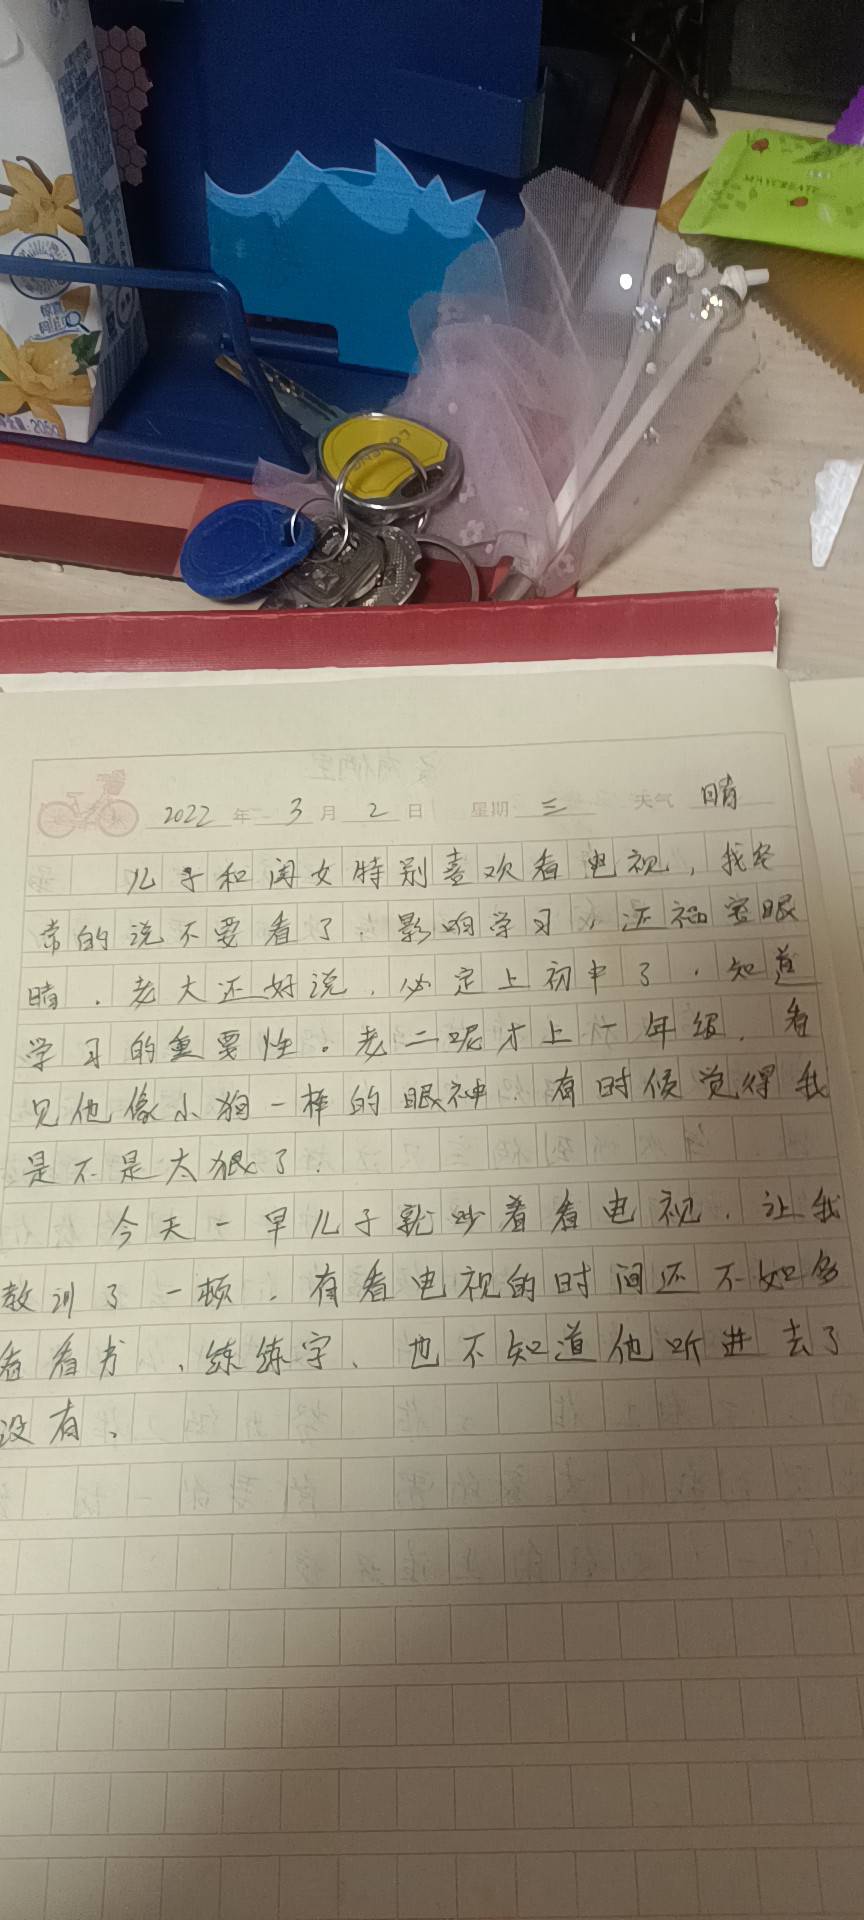 MAYCREATE
205g
2022 年 3 月 2 日 星期 三 天气 晴
儿子和闺女特别喜欢看电视，我经
常的说不要看了．影响学习，还祸害眼
睛．老大还好说．必定上初中了．知道
学习的重要性。老二呢才上一年级．看
见他像小狗一样的眼神．有时候觉得我
是不是太狠了．
今天一早儿子就吵着看电视．让我
教训了一顿．有看电视的时间还不如多
看看书、练练字、也不知道他听进去了
没有、